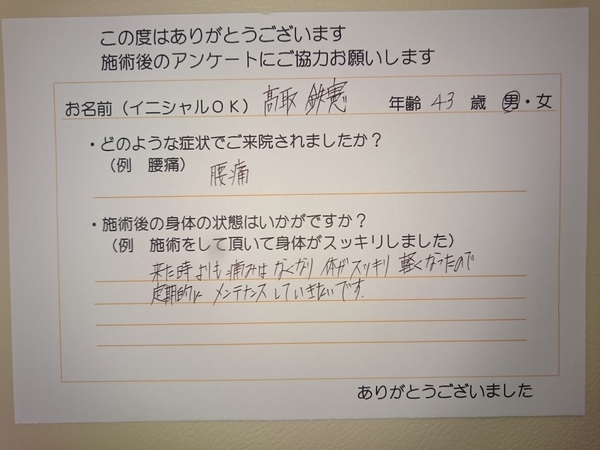 この度はありがとうございます
施術後のアンケートにご協力お願いします
お名前（イニシャルOK） 髙取 鉄実 年齢 43 歳 男・女
・どのような症状でご来院されましたか？
（例 腰痛） 腰痛
・施術後の身体の状態はいかがですか？
（例 施術をして頂いて身体がスッキリしました）
来た時よりも痛みはなくなり 体がスッキリ 軽くなったので
定期的に メンテナンスしていきたいです.
ありがとうございました